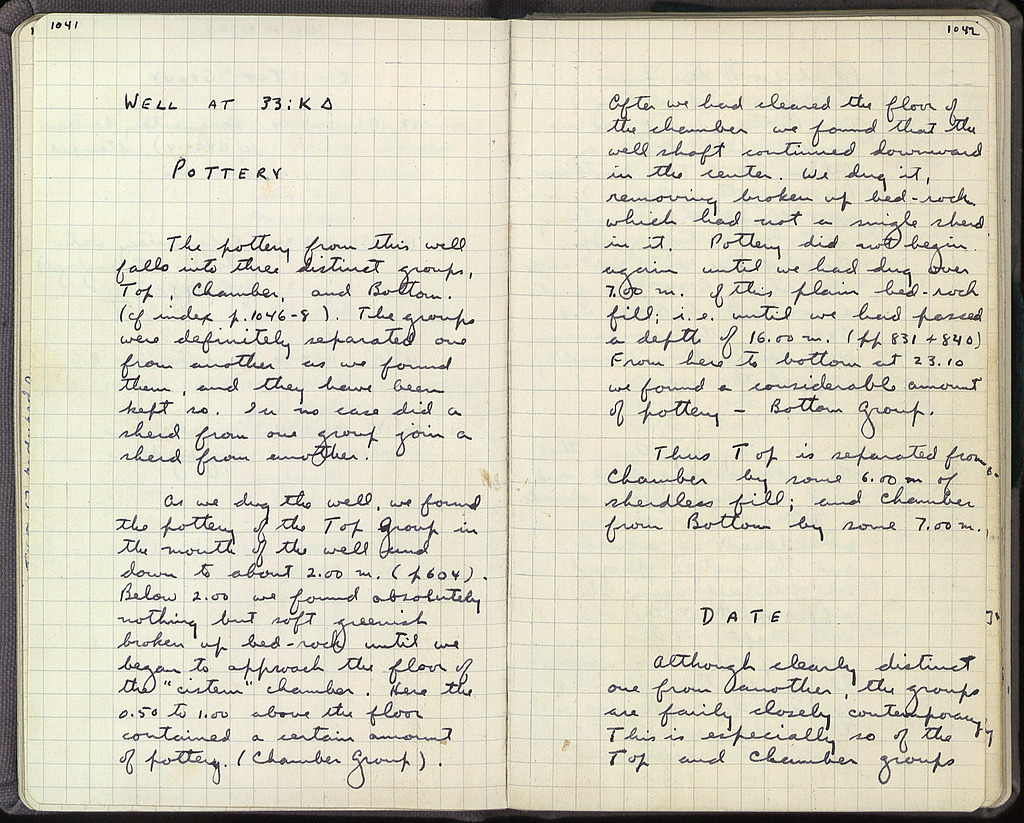 1041
WELL AT 33:K Δ
POTTERY
The pottery from this well
falls into three distinct groups,
Top, Chamber, and Bottom.
(cf index p.1046-8). The groups
were definitely separated one
from another as we found
them, and they have been
kept so. In no case did a
sherd from one group join a
sherd from another.
As we dug the well, we found
the pottery of the Top Group in
the mouth of the well and
down to about 2.00 m. (p604).
Below 2.00 we found absolutely
nothing but soft greenish
broken up bed-rock until we
began to approach the floor of
the "cistern" chamber. Here the
0.50 to 1.00 above the floor
contained a certain amount
of pottery. (Chamber Group).
1042
After we had cleared the floor of
the chamber we found that the
well shaft continued downward
in the center. We dug it,
removing broken up bed-rock
which had not a single sherd
in it. Pottery did not begin
again until we had dug over
7.00 m. of this plain bed-rock
fill; i.e. until we had passed
a depth of 16.00 m. (pp 831 + 840)
From here to bottom at 23.10
we found a considerable amount
of pottery - Bottom Group.
Thus Top is separated from
Chamber by some 6.00 m of
sherdless fill; and Chamber
from Bottom by some 7.00 m.
DATE
Although clearly distinct
one from another, the groups
are fairly closely contemporary
This is especially so of the
Top and Chamber groups